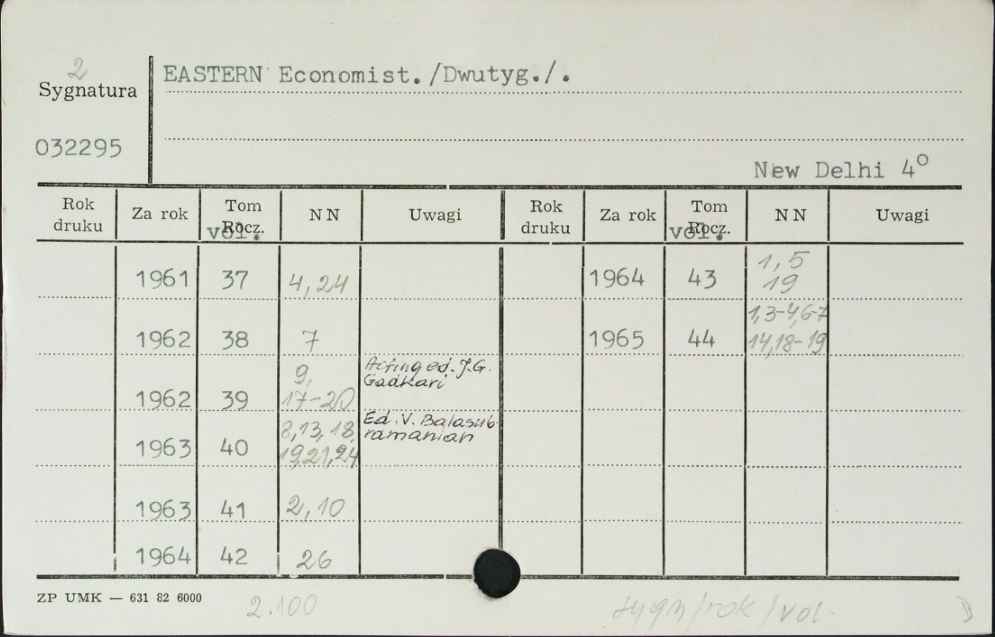 2
Sygnatura
EASTERN Economist. /Dwutyg./.
032295
New Delhi 4°
Rok druku Za rok Tom Rocz. vol. NN Uwagi Rok druku Za rok Tom Rocz. vol. NN Uwagi
1961 37 4,24
1962 38 7
1962 39 9, 17-20 Acting ed. J.G. Gadkari
1963 40 8,13,18, 19,21,24 Ed. V. Balasubramanian
1963 41 2,10
1964 42 26
1964 43 1,5 19
1965 44 1,3-4,6-7 14,18-19
ZP UMK — 631 82 6000
2.100
sygn/rok/vol.